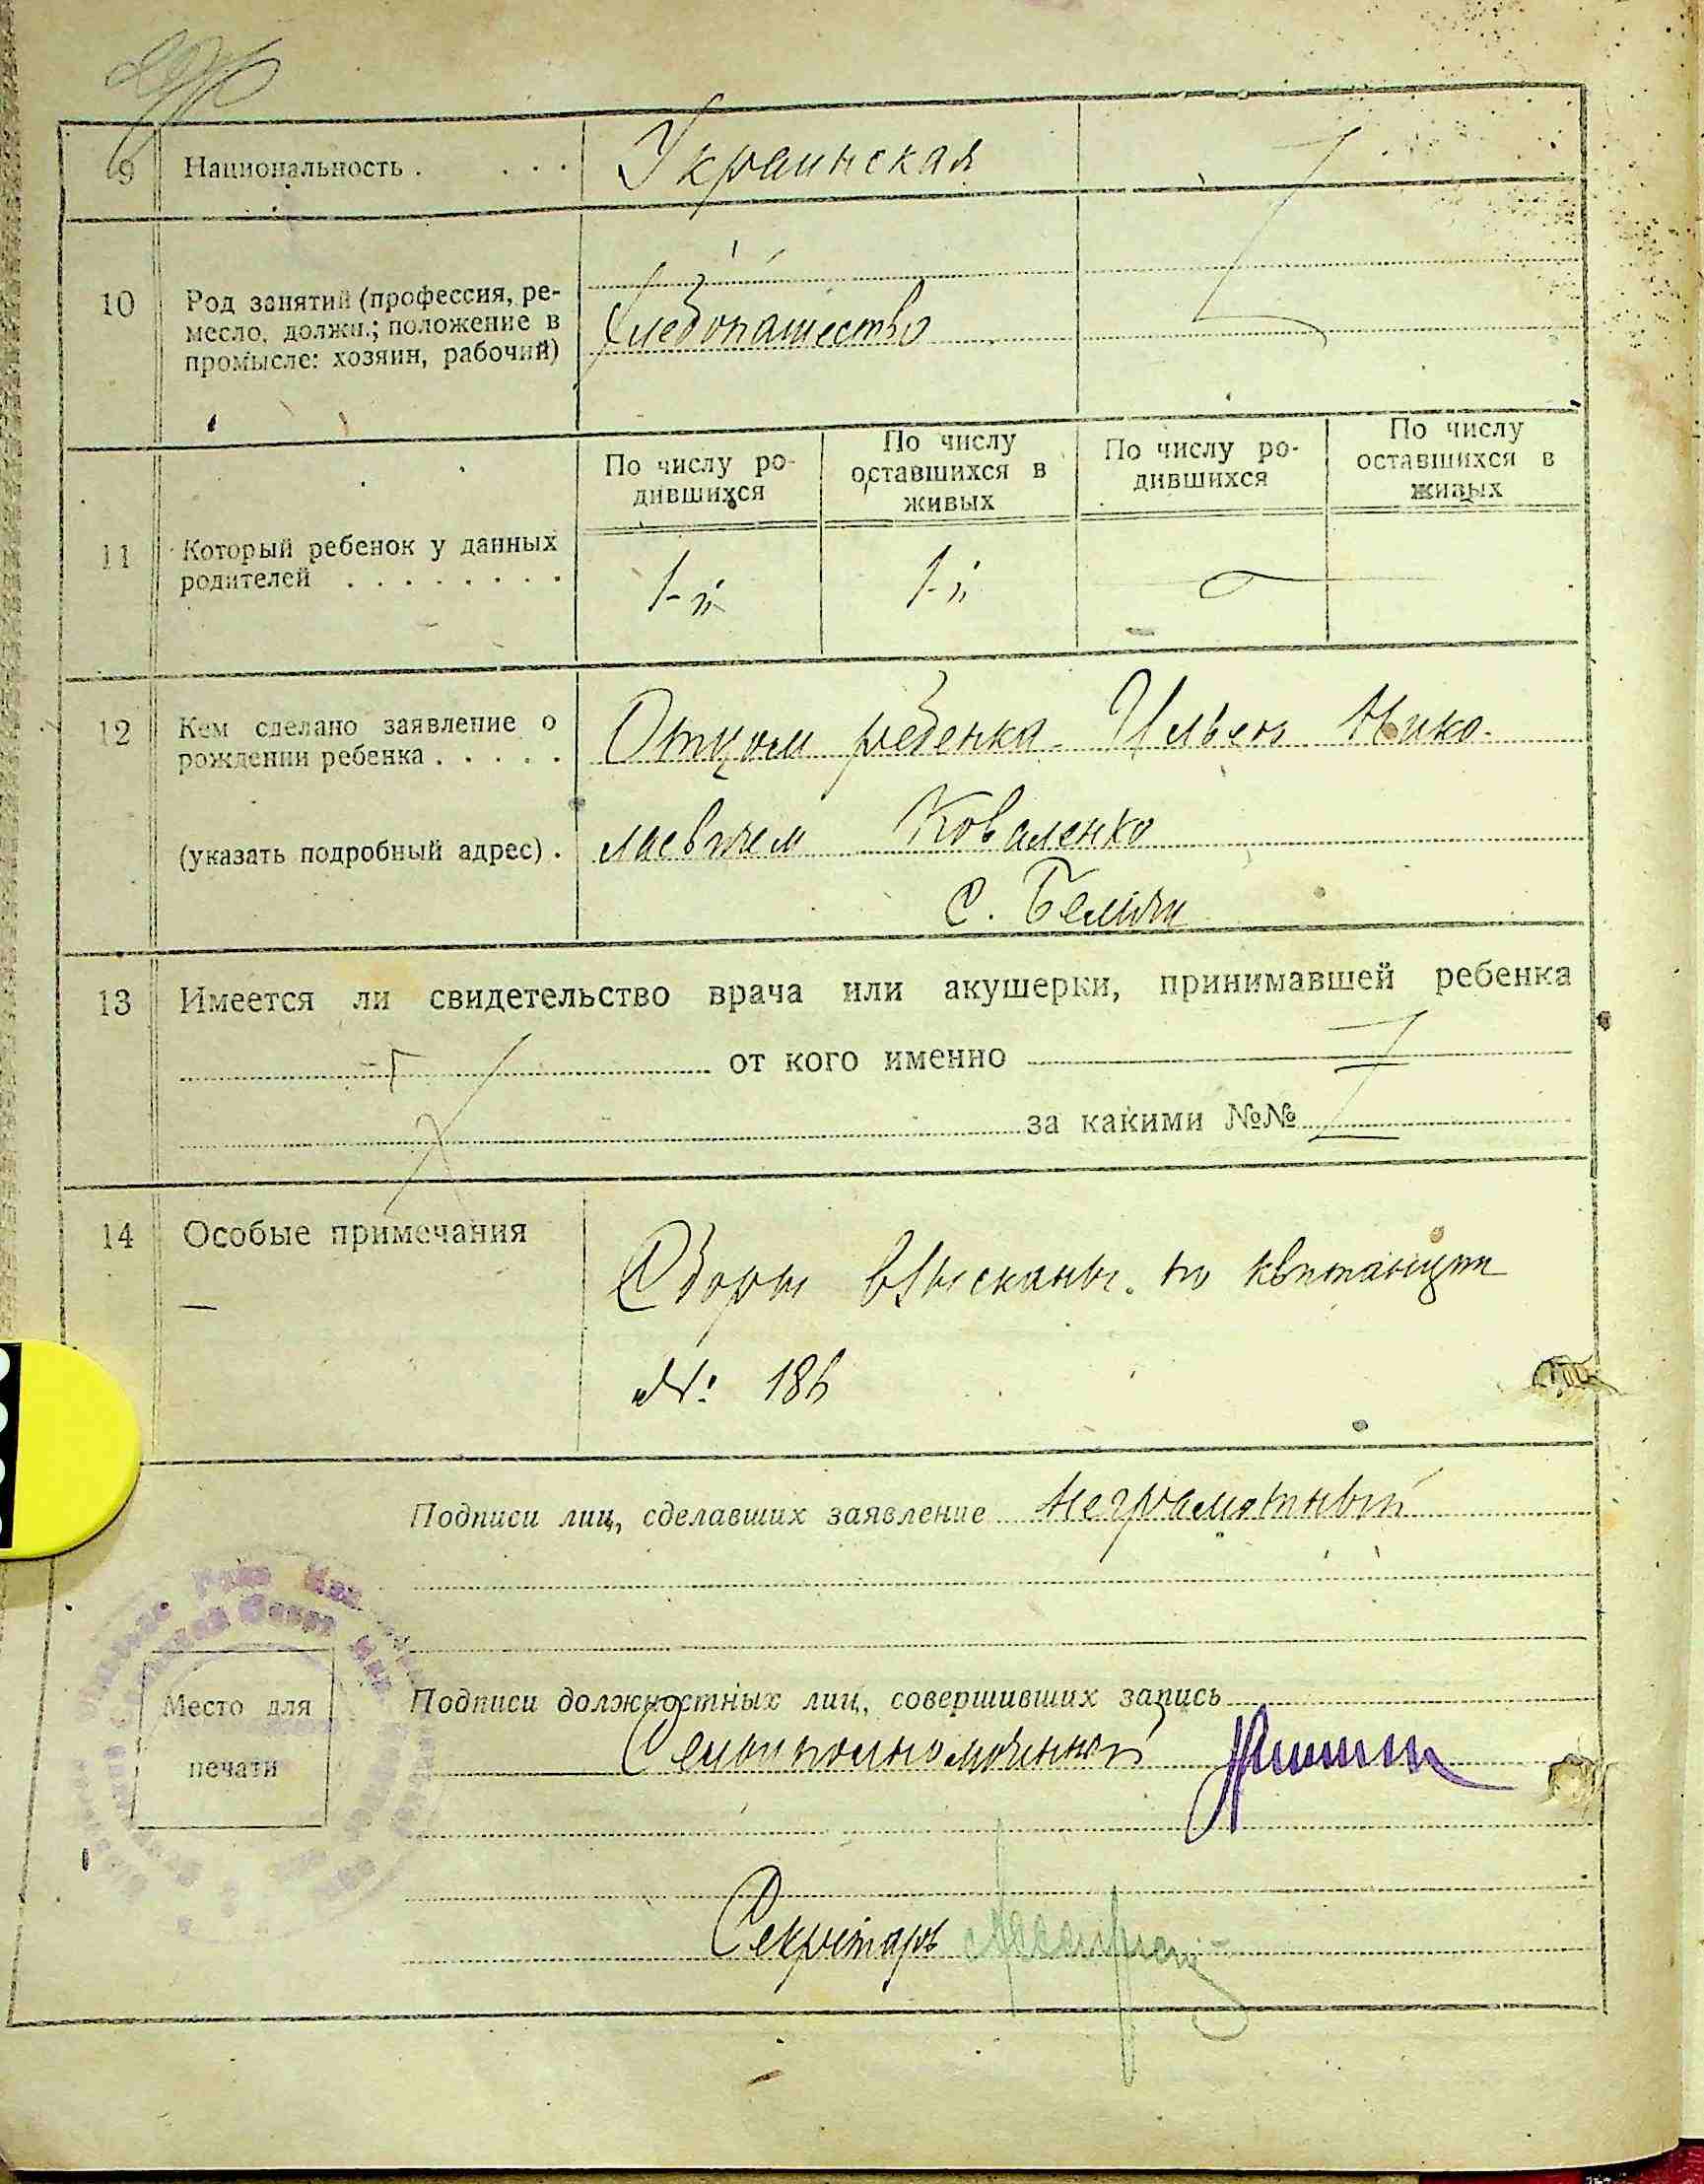 9 Национальность . . . . Украинская
10 Род занятий (профессия, ре-
месло, должн.; положение в
промысле: хозяин, рабочий)
Хлебопашество
По числу ро-
дившихся
По числу
оставшихся в
живых
По числу ро-
дившихся
По числу
оставшихся в
живых
11 Который ребенок у данных
родителей . . . . . . . .
1-й 1-й —
12 Кем сделано заявление о
рождении ребенка . . . . .
Отцом ребенка Ильей Нико-
(указать подробный адрес) . лаевичем Коваленко
с.
13 Имеется ли свидетельство врача или акушерки, принимавшей ребенка
от кого именно
за какими №№
14 Особые примечания
—
Сборы взысканы по квитанции
№: 186
Подписи лиц, сделавших заявление неграмотный
Место для
печати
Подписи должностных лиц, совершивших запись
Секретарь